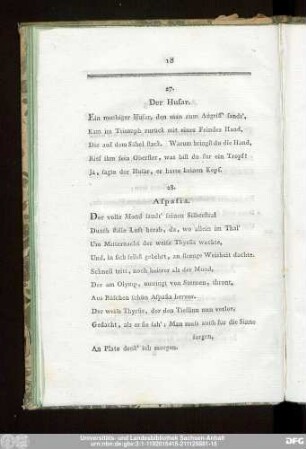 18
27.
Der Husar.
Ein muthiger Husar, den man zum Angriff sandt',
Kam im Triumph zurück mit eines Feindes Hand,
Die auf dem Säbel stach. Warum bringst du die Hand,
Rief ihm sein Oberster, was bist du für ein Tropf?
Ja, sagte der Husar, er hatte keinen Kopf.
28.
Aspasia.
Der volle Mond sandt' seinen Silberstral
Durch stille Luft herab, da, wo allein im Thal'
Um Mitternacht der weise Thyrsis wachte,
Und, in sich selbst gekehrt, an strenge Weisheit dachte.
Schnell tritt, noch heitrer als der Mond,
Der am Olymp, umringt von Sternen, thront,
Aus Büschen schön Aspasia hervor.
Der weise Thyrsis, der den Tiefsinn nun verlor,
Gedacht, als er sie sah': Man muß auch für die Sinne
sorgen,
An Plato denk' ich morgen.
Universitäts- und Landesbibliothek Sachsen-Anhalt
DFG